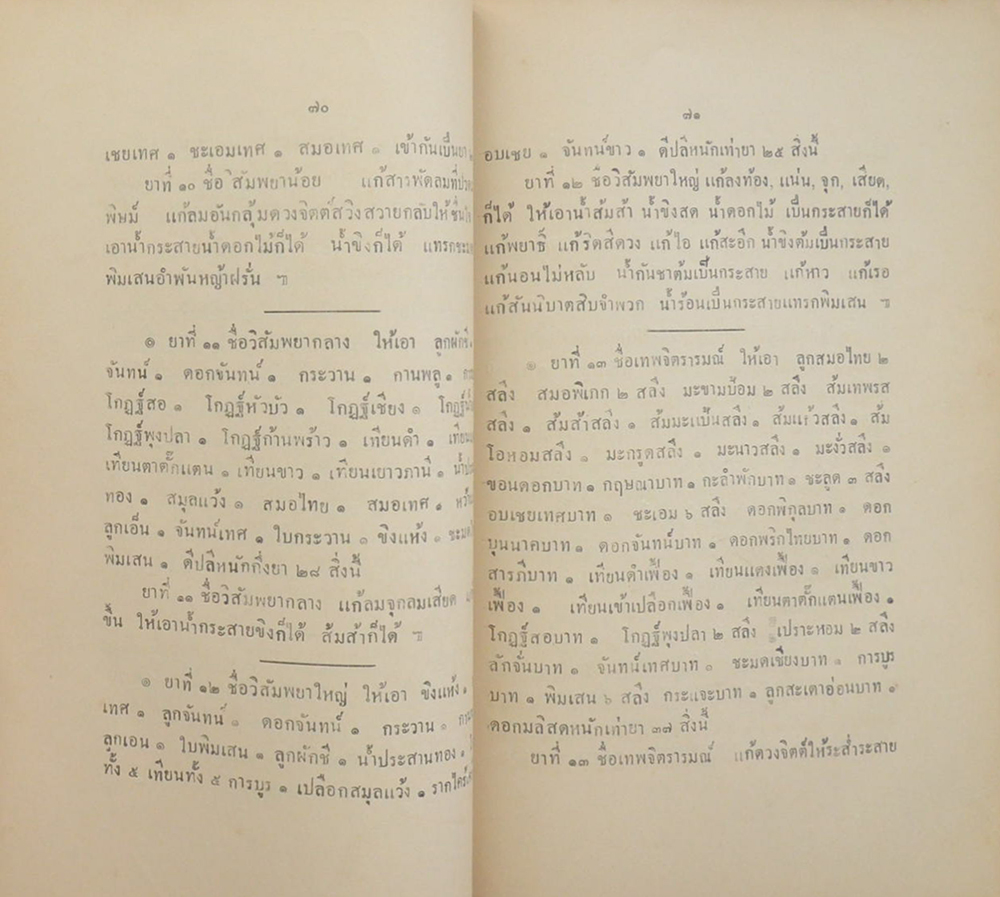 ๗๐
เชยเทศ ๑ ชะเอมเทศ ๑ สมอเทศ ๑ เข้ากันเป็นยา
ยาที่ ๑๐ ชื่อ วิสัมพยาน้อย แก้สารพัดลมที่
พิษม์ แก้ลมอันกลุ้มดวงจิตต์สวิงสวายกลับให้
เอาน้ำกระสายน้ำดอกไม้ก็ได้ น้ำขิงก็ได้ แทรก
พิมเสนอำพันหญ้าฝรั่น ฯ
๏ ยาที่ ๑๑ ชื่อวิสัมพยากลาง ให้เอา ลูกผักชี
จันทน์ ๑ ดอกจันทน์ ๑ กระวาน ๑ กานพลู ๑
โกฏฐ์สอ ๑ โกฏฐ์หัวบัว ๑ โกฏฐ์เชียง ๑ โกฏฐ์
โกฏฐ์พุงปลา ๑ โกฏฐ์ก้านพร้าว ๑ เทียนดำ ๑ เทียน
เทียนตาตั๊กแตน ๑ เทียนขาว ๑ เทียนเยาวภานี ๑
ทอง ๑ สมุลแว้ง ๑ สมอไทย ๑ สมอเทศ ๑
ลูกเอ็น ๑ จันทน์เทศ ๑ ใบกระวาน ๑ ขิงแห้ง ๑
พิมเสน ๑ ดีปลีหนักกึ่งยา ๒๘ สิ่งนี้
ยาที่ ๑๑ ชื่อวิสัมพยากลาง แก้ลมจุกลมเสียด
ขึ้น ให้เอาน้ำกระสายขิงก็ได้ ส้มส้าก็ได้ ฯ
๏ ยาที่ ๑๒ ชื่อวิสัมพยาใหญ่ ให้เอา ขิงแห้ง ๑
เทศ ๑ ลูกจันทน์ ๑ ดอกจันทน์ ๑ กระวาน ๑
ลูกเอน ๑ ใบพิมเสน ๑ ลูกผักชี ๑ น้ำประสานทอง ๑
ทั้ง ๕ เทียนทั้ง ๕ การบูร ๑ เปลือกสมุลแว้ง ๑
๗๑
อบเชย ๑ จันทน์ขาว ๑ ดีปลีหนักเท่ายา ๒๕ สิ่งนี้
ยาที่ ๑๒ ชื่อวิสัมพยาใหญ่ แก้ลงท้อง, แน่น, จุก, เสียด,
ก็ได้ ให้เอาน้ำส้มส้า น้ำขิงสด น้ำดอกไม้ เป็นกระสายก็ได้
แก้พยาธิ์ แก้ริดสีดวง แก้ไอ แก้สะอึก น้ำขิงต้มเป็นกระสาย
แก้นอนไม่หลับ น้ำกันชาต้มเป็นกระสาย แก้หาว แก้เรอ
แก้สันนิบาตสิบจำพวก น้ำร้อนเป็นกระสายแทรกพิมเสน ฯ
๏ ยาที่ ๑๓ ชื่อเทพจิตรารมณ์ ให้เอา ลูกสมอไทย ๒
สลึง สมอพิเภก ๒ สลึง มะขามป้อม ๒ สลึง ส้มเทพรส
สลึง ๑ ส้มส้าสลึง ๑ ส้มมะแป้นสลึง ๑ ส้มแก้วสลึง ๑ ส้ม
โอหอมสลึง ๑ มะกรูดสลึง ๑ มะนาวสลึง ๑ มะงั่วสลึง ๑
ขอนดอกบาท ๑ กฤษณาบาท ๑ กะลำพักบาท ๑ ชะลูด ๓ สลึง
อบเชยเทศบาท ๑ ชะเอม ๖ สลึง ดอกพิกุลบาท ๑ ดอก
บุนนาคบาท ๑ ดอกจันทน์บาท ๑ ดอกพริกไทยบาท ๑ ดอก
สารภีบาท ๑ เทียนดำเฟื้อง ๑ เทียนแดงเฟื้อง ๑ เทียนขาว
เฟื้อง ๑ เทียนเข้าเปลือกเฟื้อง ๑ เทียนตาตั๊กแตนเฟื้อง ๑
โกฏฐ์สอบาท ๑ โกฏฐ์พุงปลา ๒ สลึง เปราะหอม ๒ สลึง
ลักจั่นบาท ๑ จันทน์เทศบาท ๑ ชะมดเชียงบาท ๑ การบูร
บาท ๑ พิมเสน ๖ สลึง กระแจะบาท ๑ ลูกสะเดาอ่อนบาท ๑
ดอกมลิสดหนักเท่ายา ๓๗ สิ่งนี้
ยาที่ ๑๓ ชื่อเทพจิตรารมณ์ แก้ดวงจิตต์ให้ระส่ำระสาย